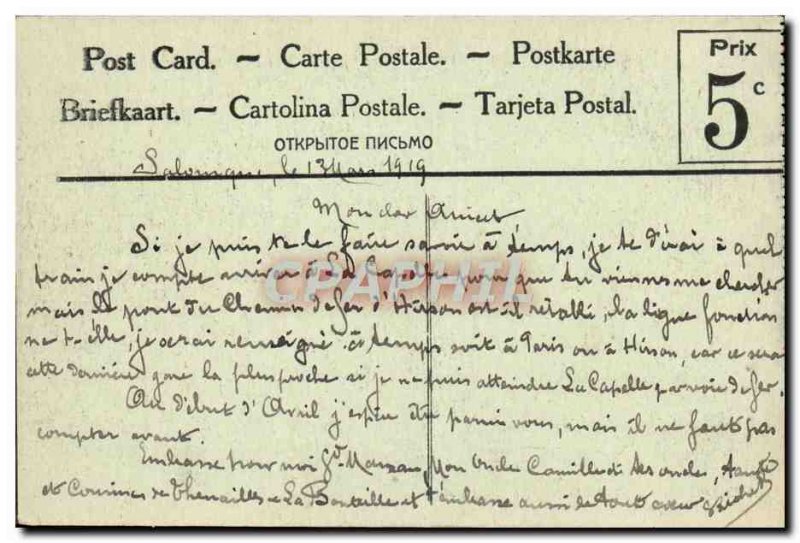 Post Card. ~ Carte Postale. ~ Postkarte
Prix
5c
Briefkaart. ~ Cartolina Postale. ~ Tarjeta Postal.
ОТКРЫТОЕ ПИСЬМО
Salonique, le 13 Mars 1919
Mon cher
Si je puis te le faire savoir à temps, je te dirai à quel
train je compte arriver à La Capelle pour que tu viennes me chercher
mais le pont du Chemin de fer d'Hirson est-il rétabli, la ligne fonction
ne t-elle, je serai renseigné à temps soit à Paris ou à Hirson, car ce sera
cette dernière gare la plus proche si je ne puis atteindre La Capelle par voie de fer.
Au début d'Avril j'espère être parmi vous, mais il ne faut pas
compter avant.
Embrasse pour moi Gd Maman, Mon Oncle Camille et tes oncles, Tantes
et Cousines de Thenailles La Bouteille et t'embrasse aussi de tout cœur
CPAPHIL